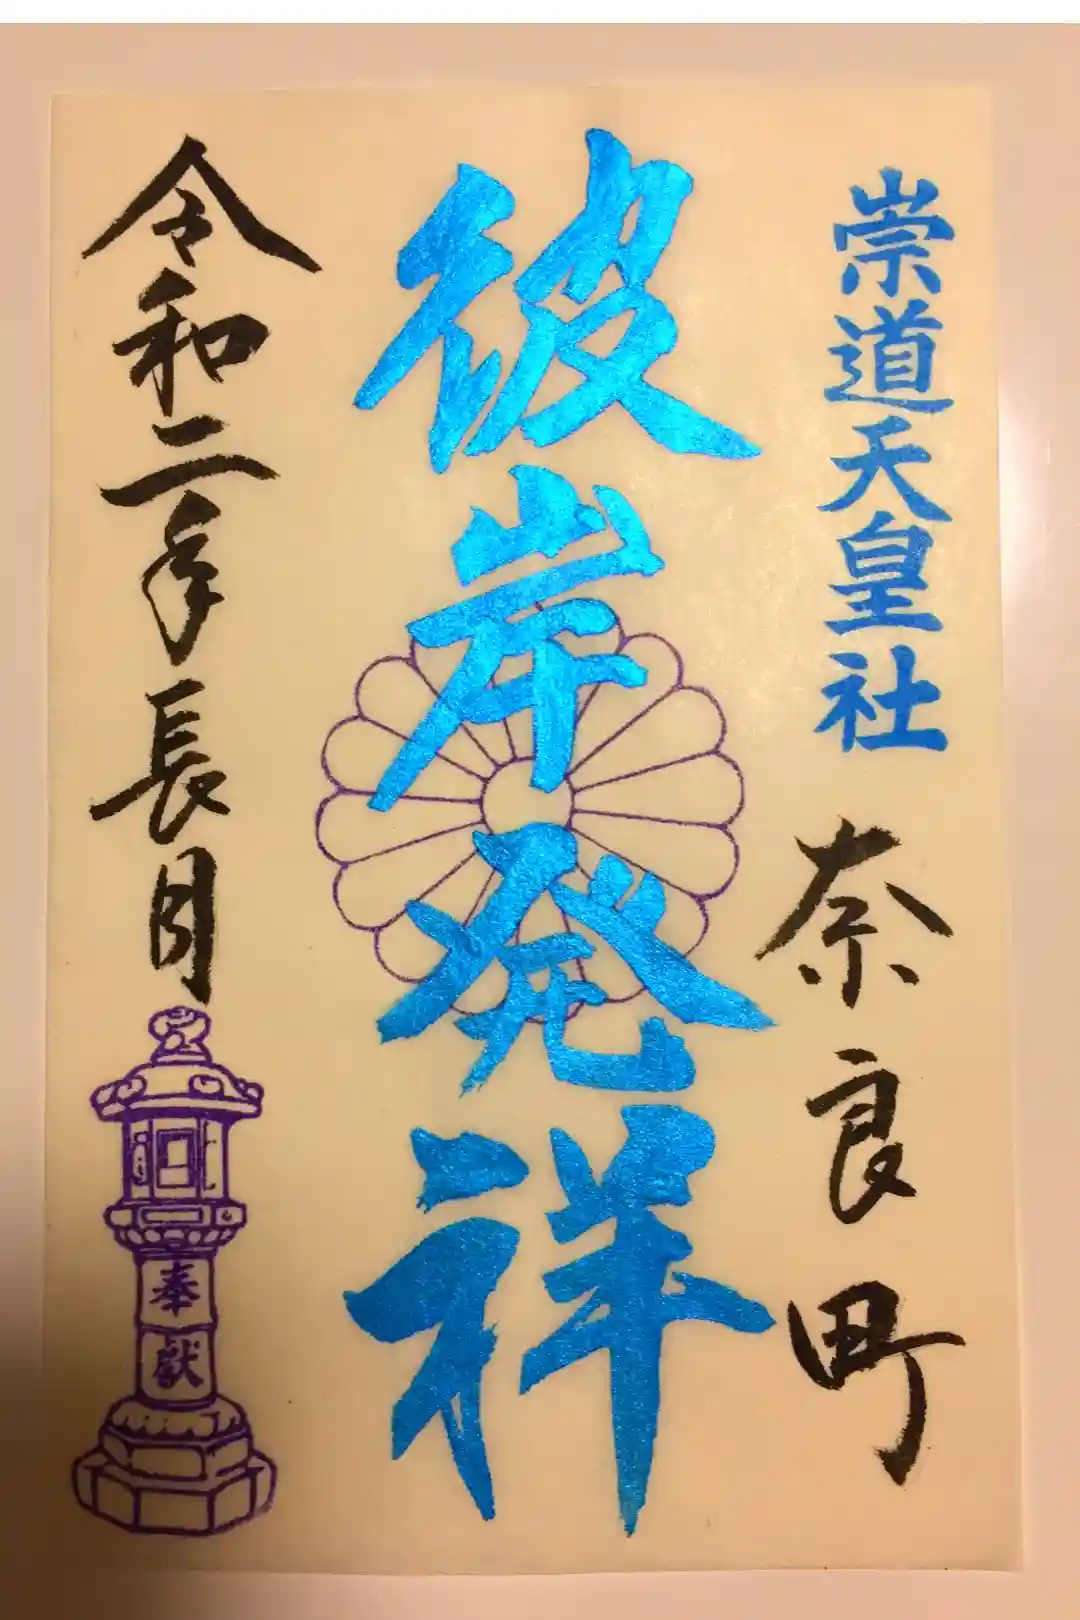 崇道天皇社
奈良町
彼岸発祥
令和二年長月
奉献